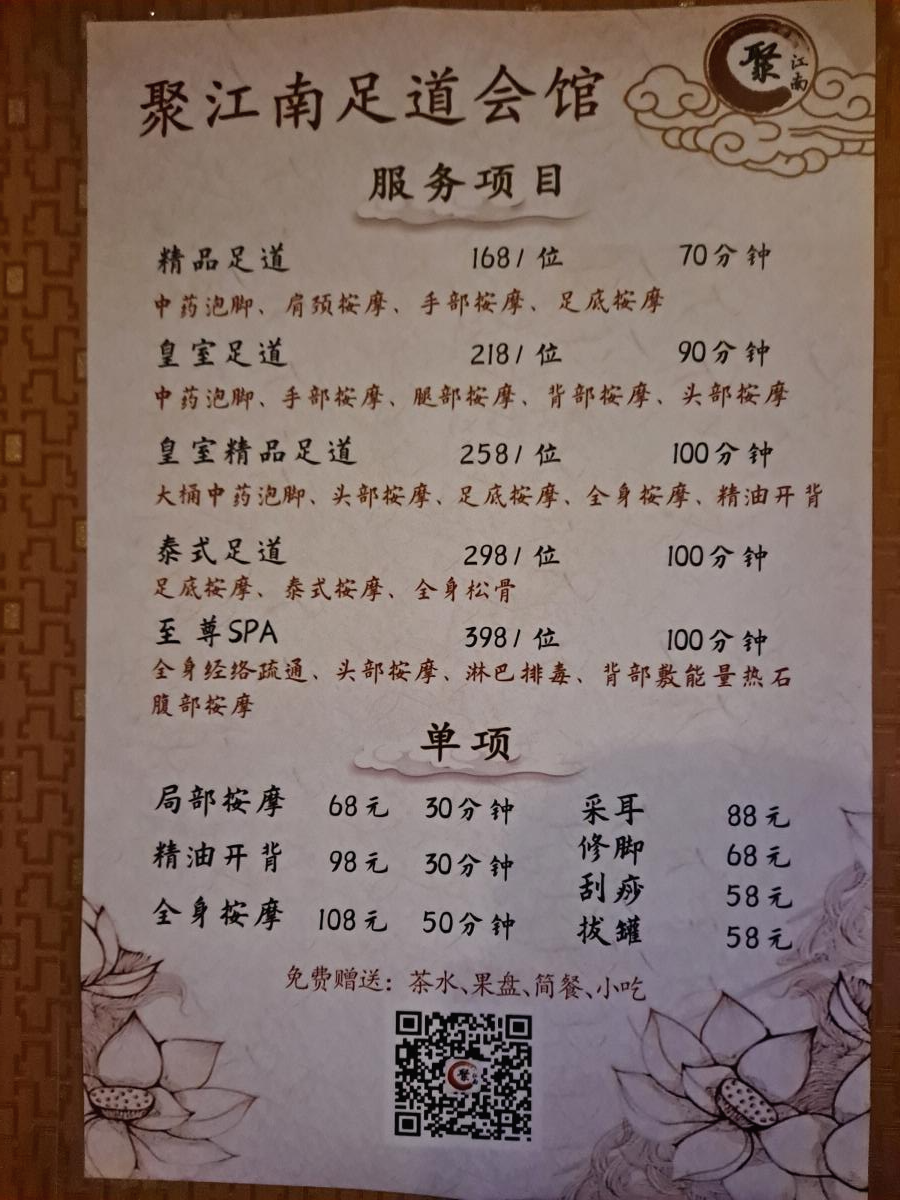 聚江南
聚江南足道会馆
服务项目
精品足道 168/位 70分钟
中药泡脚、肩颈按摩、手部按摩、足底按摩
皇室足道 218/位 90分钟
中药泡脚、手部按摩、腿部按摩、背部按摩、头部按摩
皇室精品足道 258/位 100分钟
大桶中药泡脚、头部按摩、足底按摩、全身按摩、精油开背
泰式足道 298/位 100分钟
足底按摩、泰式按摩、全身松骨
至尊SPA 398/位 100分钟
全身经络疏通、头部按摩、淋巴排毒、背部敷能量热石
腹部按摩
单项
局部按摩 68元 30分钟 采耳 88元
精油开背 98元 30分钟 修脚 68元
刮痧 58元
全身按摩 108元 50分钟 拔罐 58元
免费赠送：茶水、果盘、简餐、小吃
聚